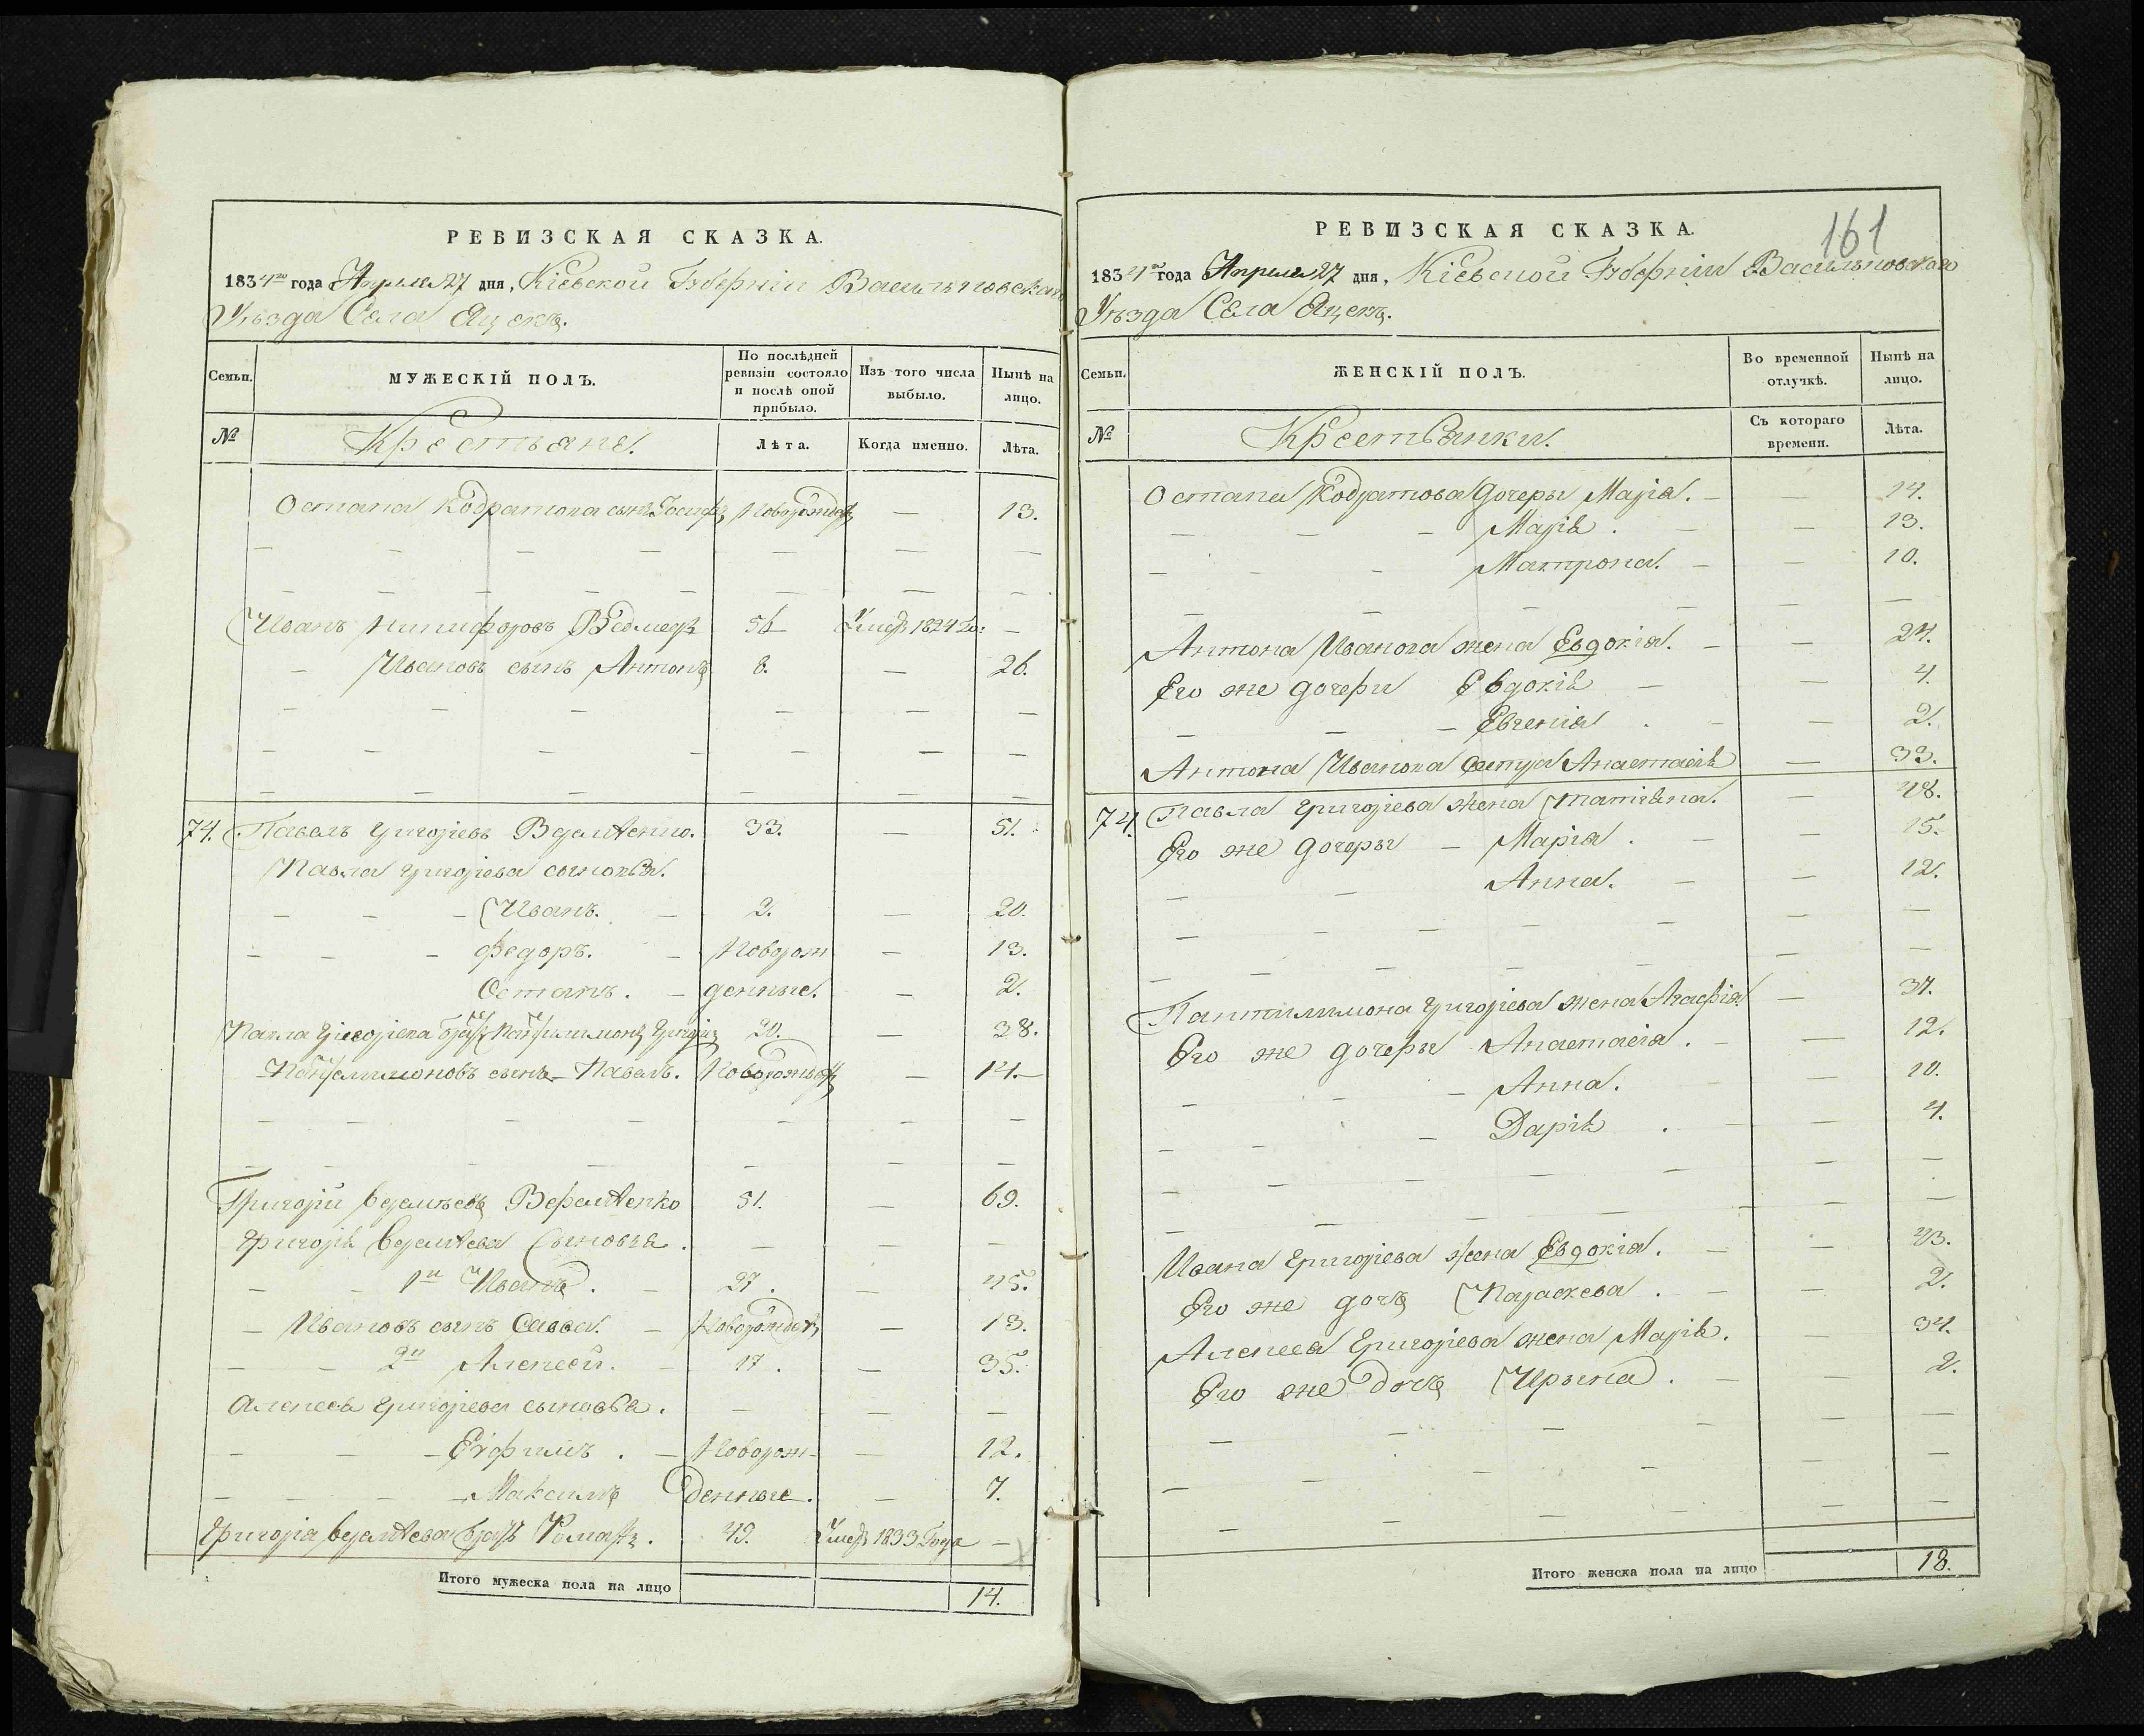 РЕВИЗСКАЯ СКАЗКА.
1834го года Апреля 27 дня, Кіевской Губерніи Васильковскаго
Уѣзда Села Яцекъ.
Семьи.
МУЖЕСКІЙ ПОЛЪ.
По послѣдней ревизіи состояло и послѣ оной прибыло.
Изъ того числа выбыло.
Нынѣ на лицо.
№
Крестьяне.
Лѣта.
Когда именно.
Лѣта.
Остапа Кодратова сынъ Іосифъ Новорожден — 13.
Иванъ Никифоровъ Ведмедь 56 Умеръ 1824 го: —
— Ивановъ сынъ Антонъ 8. — 26.
74. Павелъ Григоріевъ 33. — 51.
Павла Григоріева сыновья.
— — — Иванъ. — 2. — 20.
— — — Федоръ. — Новорож — 13.
Остапъ. — денные. — 2.
Павла Григоріева братъ Григоріевъ 20. — 38.
сынъ — Павелъ. Новорожден — 14. —
Григорій 51. — 69.
Григорія сыновья. — — —
— — 1й Иванъ. — 27. — 45.
— Ивановъ сынъ Савва. — Новорожден — 13.
— — 2й Алексей. — 17. — 35.
Алексея Григоріева сыновья. — — —
— — — Евфимъ. — Новорож- — 12.
— — — — Максимъ денные. — 7.
Григорія братъ 49. Умеръ 1833 Года —
Итого мужеска пола на лицо 14.
161
РЕВИЗСКАЯ СКАЗКА.
1834го года Апреля 27 дня, Кіевской Губерніи Васильковскаго
Уѣзда Села Яцекъ.
Семьи.
ЖЕНСКІЙ ПОЛЪ.
Во временной отлучкѣ.
Нынѣ на лицо.
№
Крестьянки.
Съ котораго времени.
Лѣта.
Остапа Кодратова дочеры Марія. — — 14.
— — — Марія. — — 13.
— — — Матрона. — — 10.
Антона Иванова жена Евдокія. — — 24.
Его же дочери Евдокія — — 4.
— — — Евгенія. — — 2.
Антона Иванова сестра Анастасія — 33.
74. Павла Григоріева жена Татіяна. — 48.
Его же дочеры — Марія. — — 15.
— — Анна. — — 12.
Пантилимона Григоріева жена Агафія — 37.
Его же дочеры Анастасія. — — 12.
— — Анна. — — 10.
— — Дарія. — — 4.
Ивана Григоріева жена Евдокія. — — 43.
Его же дочъ Параскева. — — 2.
Алексея Григоріева жена Марія. — 34.
Его же дочъ Ирына. — — 2.
Итого женска пола на лицо 18.